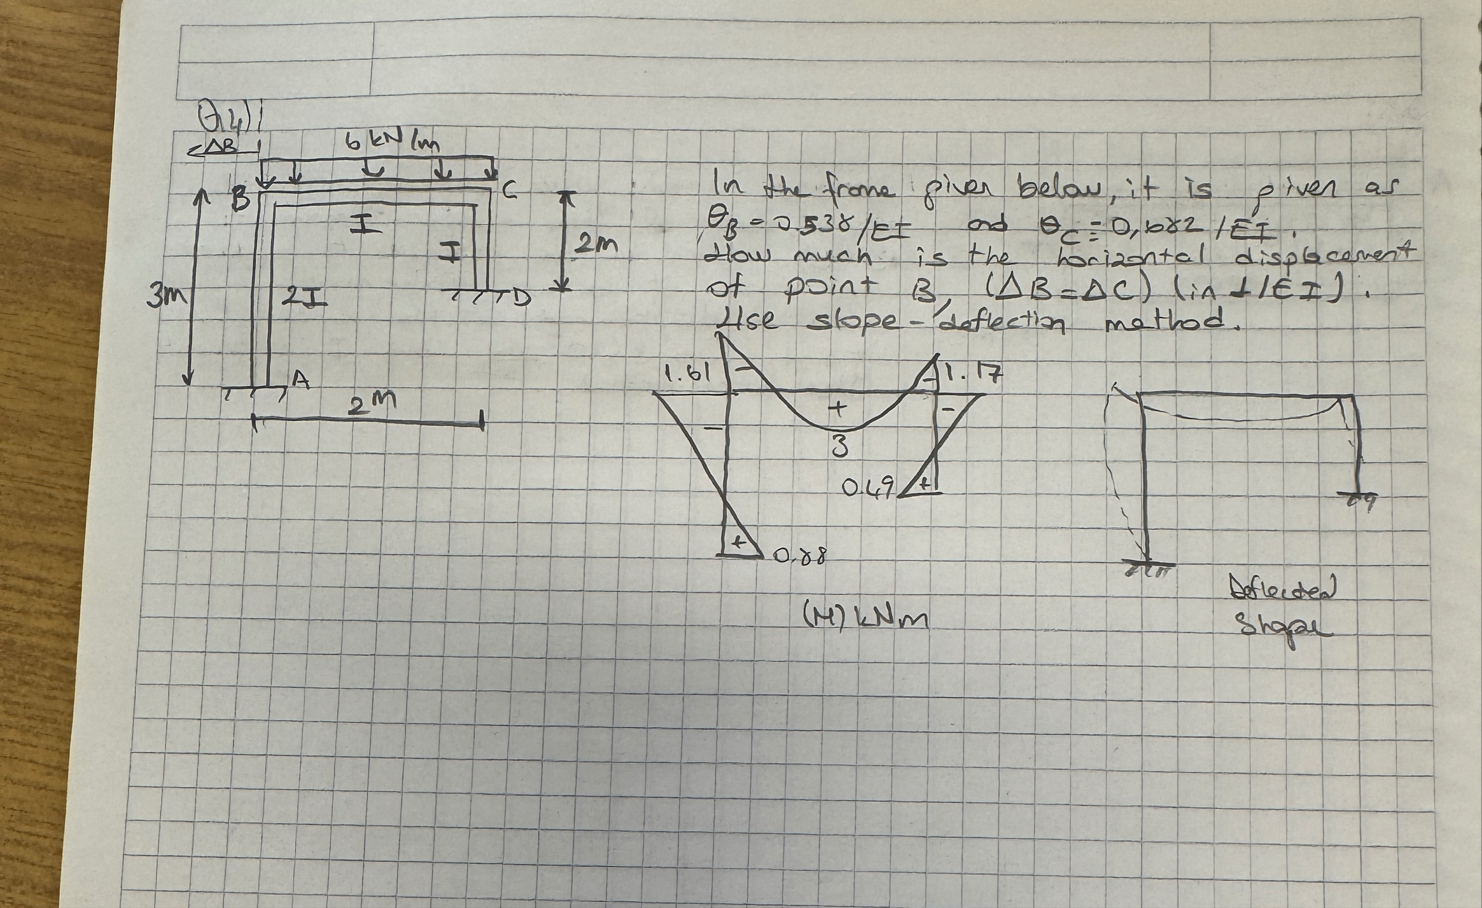 Q4)
ΔB
6 kN/m
B
C
I
I
2m
3m
2I
D
A
2m
In the frame given below, it is given as
θB = 0.538/EI and θC = 0,682/EI.
How much is the horizontal displacement
of point B, (ΔB=ΔC) (in 1/EI).
Use slope-deflection method.
1.61
-
-
1.17
+
-
-
3
0.49
+
+
0.88
(M) kNm
Deflected
Shape